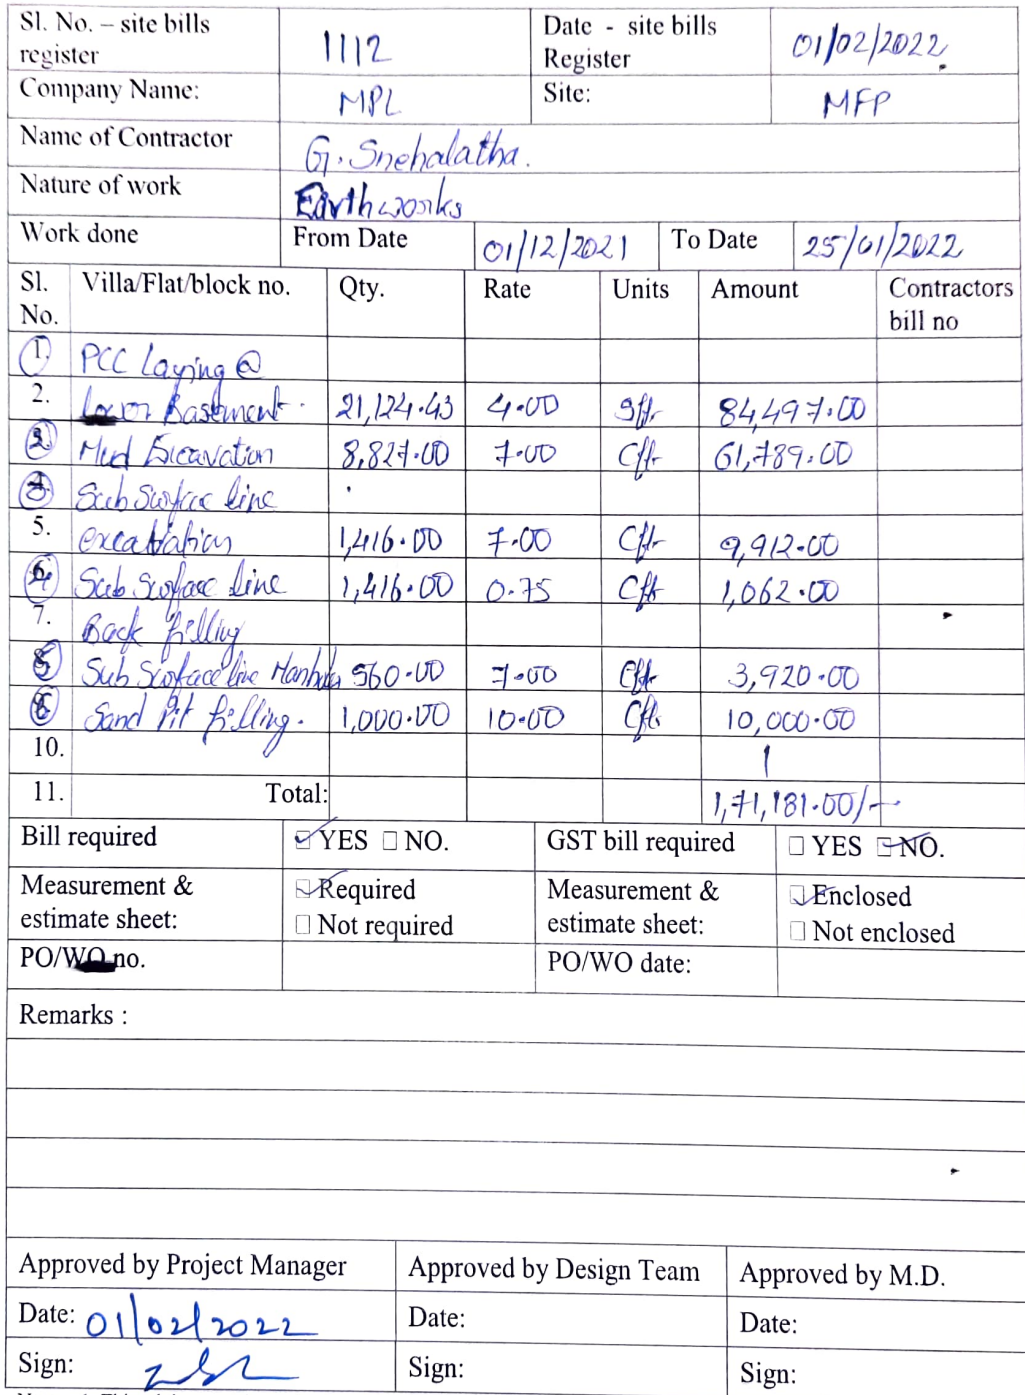 Sl. No. – site bills register 1112 Date - site bills Register 01/02/2022
Company Name: MPL Site: MFP
Name of Contractor G. Snehalatha.
Nature of work Earthworks
Work done From Date 01/12/2021 To Date 25/01/2022
Sl. No. Villa/Flat/block no. Qty. Rate Units Amount Contractors bill no
1. PCC Laying @
2. Lower Basement. 21,124.43 4.00 Sft. 84,497.00
2. Mud Excavation 8,827.00 7.00 Cft 61,789.00
3. Sub Surface line
5. excavation 1,416.00 7.00 Cft 9,912.00
6. Sub Surface line 1,416.00 0.75 Cft 1,062.00
7. Back filling
5. Sub Surface line Manhole 560.00 7.00 Cft 3,920.00
6. Sand Pit filling. 1,000.00 10.00 Cft 10,000.00
10.
11. Total: 1,71,181.00/-
Bill required ☑ YES □ NO. GST bill required □ YES ☑ NO.
Measurement & estimate sheet: ☑ Required □ Not required Measurement & estimate sheet: ☑ Enclosed □ Not enclosed
PO/WO no. PO/WO date:
Remarks :
Approved by Project Manager Approved by Design Team Approved by M.D.
Date: 01/02/2022 Date: Date:
Sign: Sign: Sign: